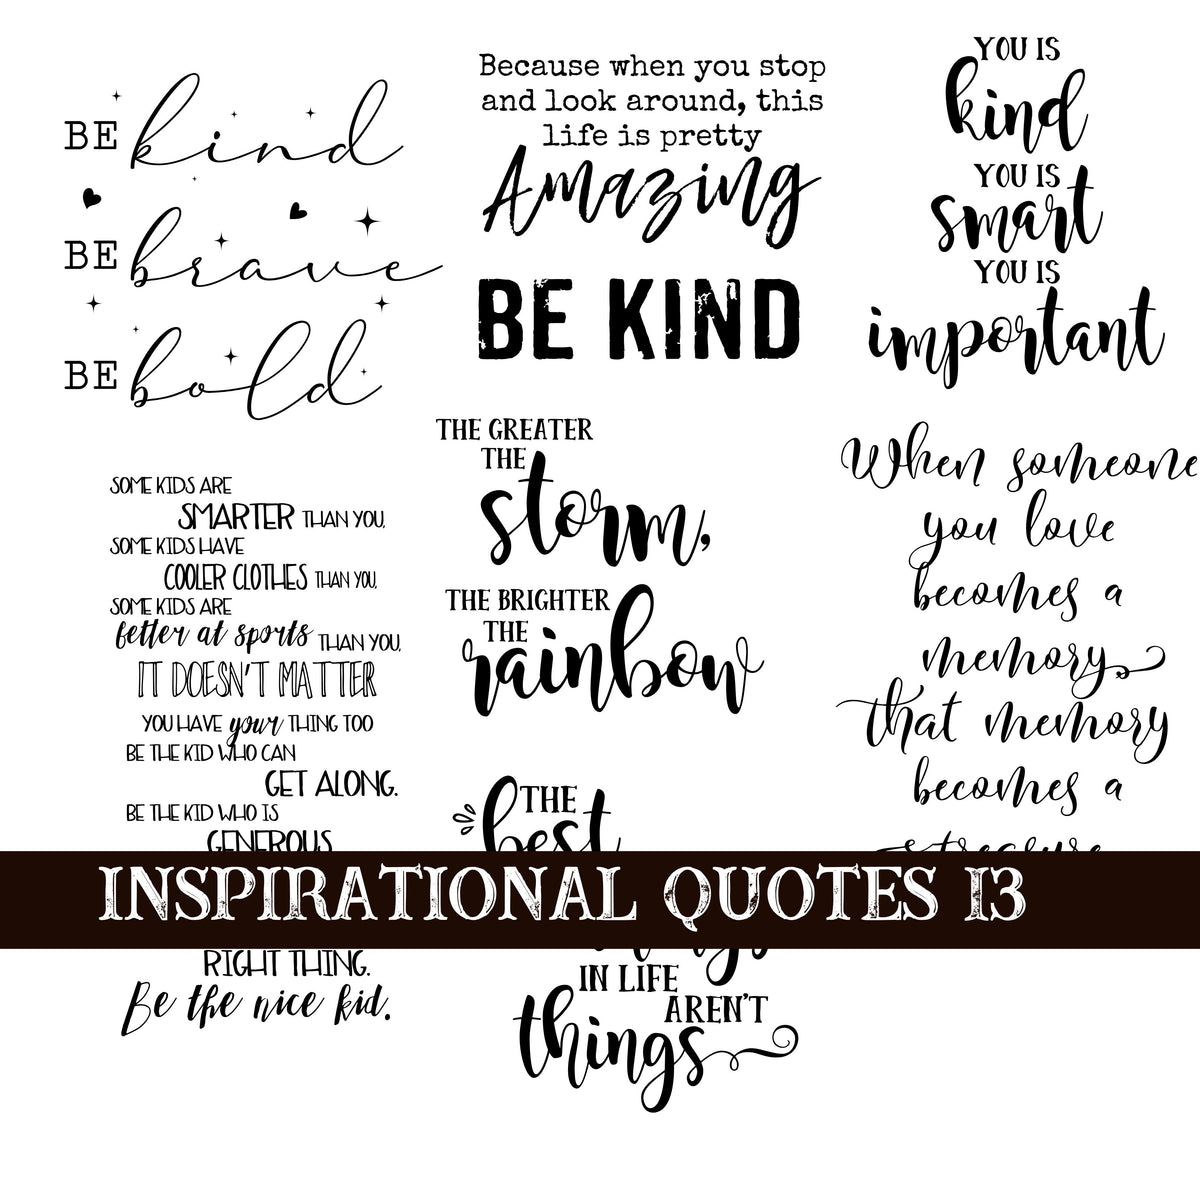 BE kind
BE brave
BE bold
SOME KIDS ARE
SMARTER THAN YOU,
SOME KIDS HAVE
COOLER CLOTHES THAN YOU,
SOME KIDS ARE
better at sports THAN YOU,
IT DOESN'T MATTER
YOU HAVE your THING TOO
BE THE KID WHO CAN
GET ALONG.
BE THE KID WHO IS
GENEROUS
RIGHT THING.
Be the nice kid.
Because when you stop
and look around, this
life is pretty
Amazing
BE KIND
THE GREATER
THE
storm,
THE BRIGHTER
THE
rainbow
THE
best
IN LIFE
AREN'T
things
YOU IS
kind
YOU IS
smart
YOU IS
important
When someone
you love
becomes a
memory,
that memory
becomes a
INSPIRATIONAL QUOTES 13